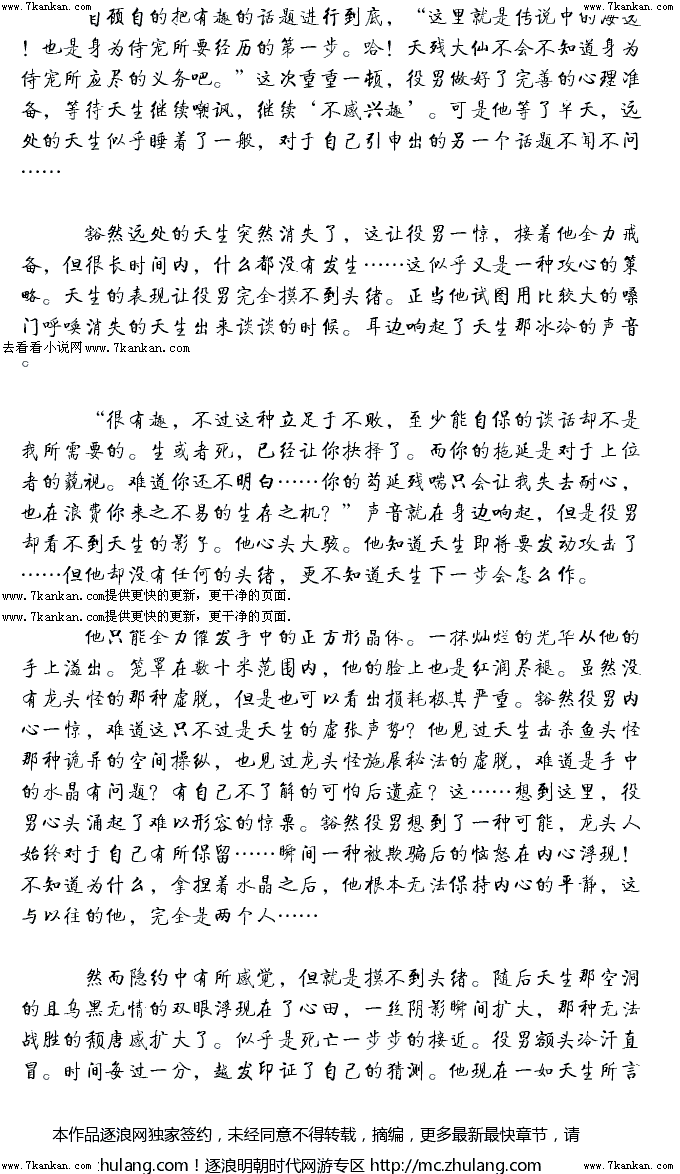 www.7kankan.com www.7kankan.com
自顾自的把有趣的话题进行到底，“这里就是传说中的海选
！也是身为侍宠所要经历的第一步。哈！天残大仙不会不知道身为
侍宠所应尽的义务吧。”这次重重一顿，役男做好了完善的心理准
备，等待天生继续嘲讽，继续‘不感兴趣’。可是他等了半天，远
处的天生似乎睡着了一般，对于自己引申出的另一个话题不闻不问
……
豁然远处的天生突然消失了，这让役男一惊，接着他全力戒
备，但很长时间内，什么都没有发生……这似乎又是一种攻心的策
略。天生的表现让役男完全摸不到头绪。正当他试图用比较大的嗓
门呼唤消失的天生出来谈谈的时候。耳边响起了天生那冰冷的声音
去看看小说网www.7kankan.com
。
“很有趣，不过这种立足于不败，至少能自保的谈话却不是
我所需要的。生或者死，已经让你抉择了。而你的拖延是对于上位
者的藐视。难道你还不明白……你的苟延残喘只会让我失去耐心，
也在浪费你来之不易的生存之机？”声音就在身边响起，但是役男
却看不到天生的影子。他心头大骇。他知道天生即将要发动攻击了
……但他却没有任何的头绪，更不知道天生下一步会怎么作。
www.7kankan.com提供更快的更新，更干净的页面.
www.7kankan.com提供更快的更新，更干净的页面.
他只能全力催发手中的正方形晶体。一抹灿烂的光华从他的
手上溢出。笼罩在数十米范围内，他的脸上也是红润尽褪。虽然没
有龙头怪的那种虚脱，但是也可以看出损耗极其严重。豁然役男内
心一惊，难道这只不过是天生的虚张声势？他见过天生击杀鱼头怪
那种诡异的空间操纵，也见过龙头怪施展秘法的虚脱，难道是手中
的水晶有问题？有自己不了解的可怕后遗症？这……想到这里，役
男心头涌起了难以形容的惊栗。豁然役男想到了一种可能，龙头人
始终对于自己有所保留……瞬间一种被欺骗后的恼怒在内心浮现！
不知道为什么，拿捏着水晶之后，他根本无法保持内心的平静，这
与以往的他，完全是两个人……
然而隐约中有所感觉，但就是摸不到头绪。随后天生那空洞
的且乌黑无情的双眼浮现在了心田，一丝阴影瞬间扩大，那种无法
战胜的颓唐感扩大了。似乎是死亡一步步的接近。役男额头冷汗直
冒。时间每过一分，越发印证了自己的猜测。他现在一如天生所言
本作品逐浪网独家签约，未经同意不得转载，摘编，更多最新最快章节，请
www.7kankan.com zhulang.com！逐浪明朝时代网游专区 http://mc.zhulang.com www.7kankan.com